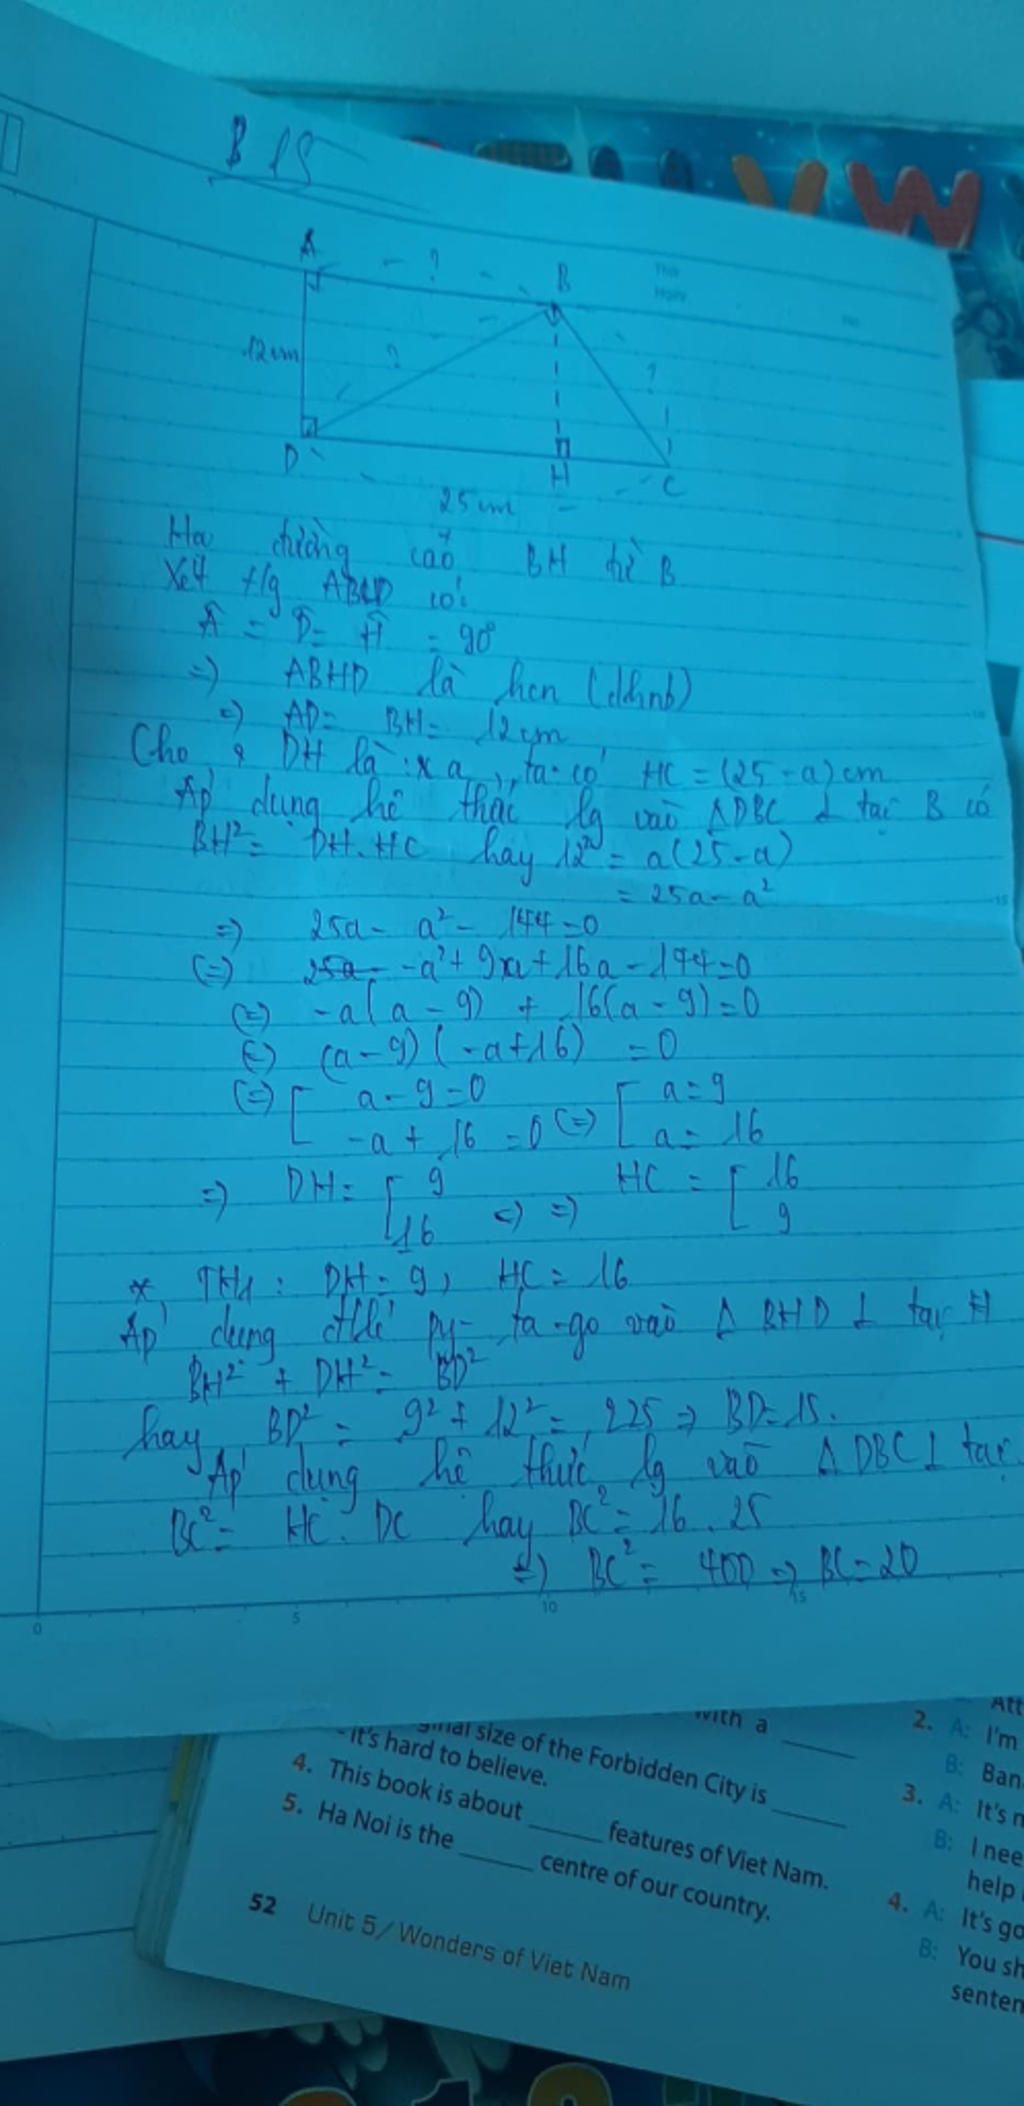 B 15
A ? B
12cm ? ?
D H C
25cm
Hạ đường cao BH từ B
Xét t/g ABHD có:
Â = D̂ = Ĥ = 90°
=> ABHD là hcn (dhnb)
=> AD = BH = 12cm
Cho DH là : x a, ta có HC = (25 - a) cm
Áp dụng hê thức lg vào Δ DBC ⊥ tại B có
BH² = DH . HC hay 12² = a(25 - a)
= 25a - a²
=> 25a - a² - 144 = 0
(=) 25a - -a² + 9a + 16a - 144 = 0
(=) -a(a - 9) + 16(a - 9) = 0
(=) (a - 9)(-a + 16) = 0
(=) [ a - 9 = 0 (=) [ a = 9
-a + 16 = 0 a = 16
=> DH = [ 9 => HC = [ 16
16 9
* TH1 : DH = 9, HC = 16
Áp dụng đlí py-ta-go vào Δ BHD ⊥ tại H
BH² + DH² = BD²
hay BD² = 9² + 12² = 225 => BD = 15.
Áp dụng hê thức lg vào Δ DBC ⊥ tại
BC² = HC . DC hay BC² = 16 . 25
=> BC² = 400 => BC = 20
0 5 10 15
size of the Forbidden City is
- It's hard to believe.
4. This book is about ______ features of Viet Nam.
5. Ha Noi is the ______ centre of our country.
52 Unit 5/ Wonders of Viet Nam
with a ______
2. A: I'm
B: Ban
3. A: It's
B: I nee
help
4. A: It's go
B: You sh
senten
V W